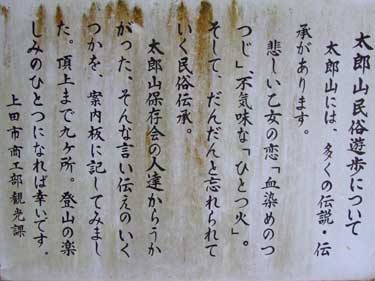 太郎山民俗遊歩について
太郎山には、多くの伝説・伝
承があります。
悲しい乙女の恋「血染めのつ
つじ」、不気味な「ひとつ火」。
そして、だんだんと忘れられて
いく民俗伝承。
太郎山保存会の人達からうか
がった、そんな言い伝えのいく
つかを、案内板に記してみまし
た。頂上まで九ヶ所。登山の楽
しみのひとつになれば幸いです。
上田市商工部観光課